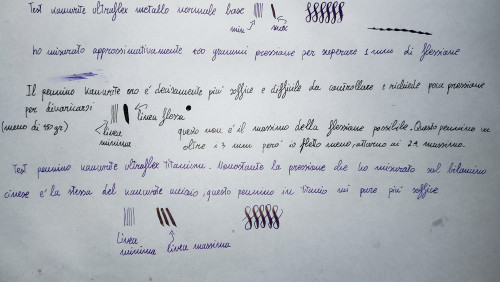 Test Kanwrite ultraflex metallo normale base
min max
ho misurato approssimativamente 100 grammi pressione per superare 1 mm di flessione
Il pennino Kanwrite oro é decisamente più soffice e difficile da controllare e richiede poca pressione
per divaricarsi
(meno di 90 gr)
linea flossa
linea
minima
questo non é il massimo della flessione possibile. Questo pennino va
oltre i 3 mm però io fletto meno, attorno ai 2.1 massimo.
Test pennino Kanwrite ultraflex titanium. Nonostante la pressione che ho misurato sul bilancino
cinese é la stessa del Kanwrite acciaio, questo pennino in titanio mi pare più soffice
linea
minima
linea massima